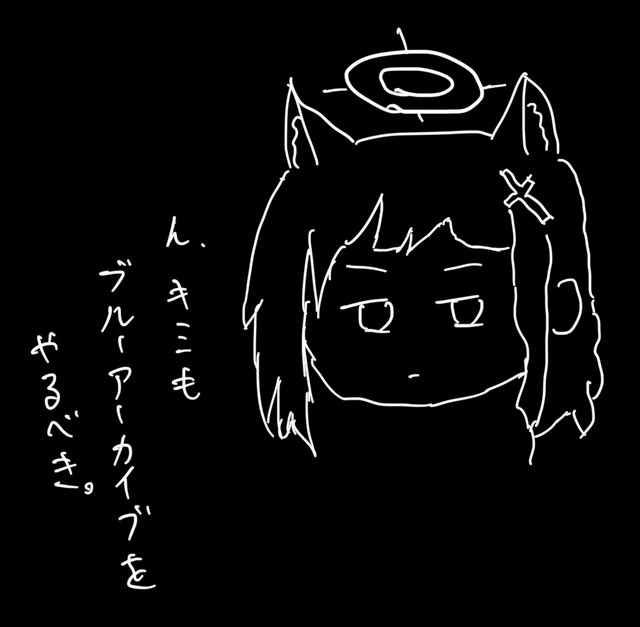 ん、キミも
ブルーアーカイブを
やるべき。